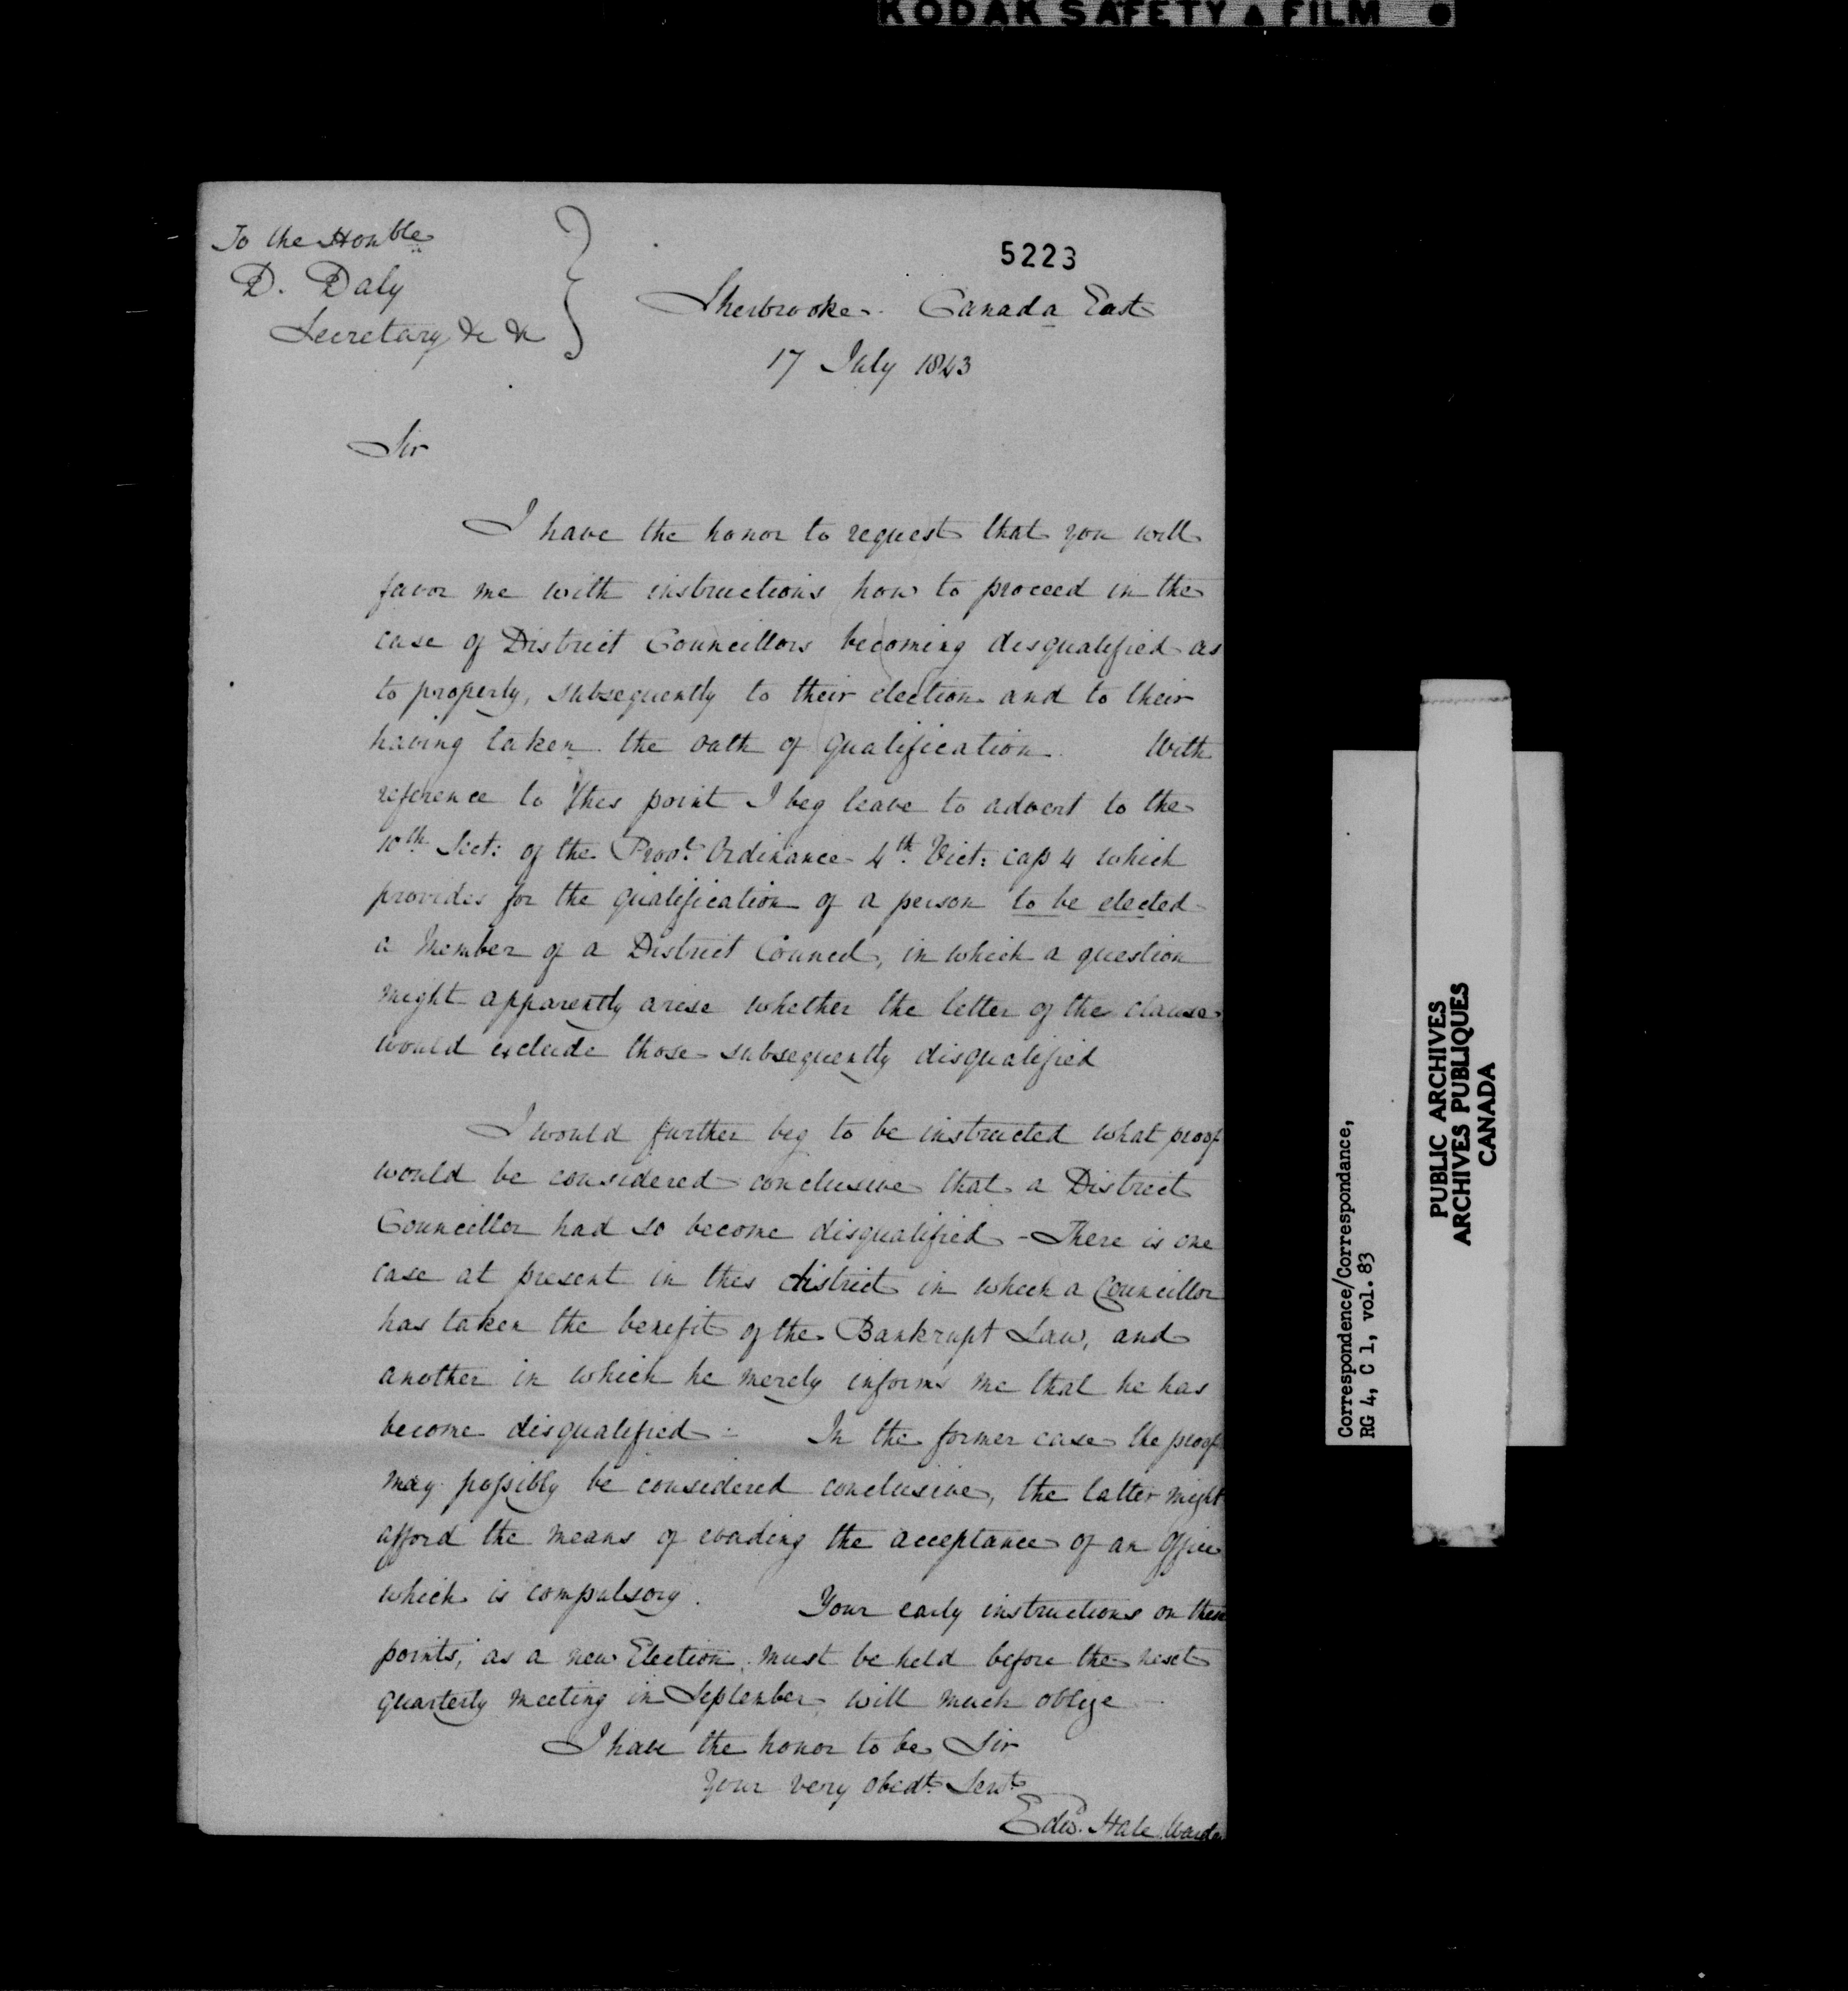 KODAK SAFETY FILM
To the Honble
D. Daly
Secretary &c &c
5223
Sherbrooke. Canada East
17 July 1843
Sir
I have the honor to request that you will
favor me with instructions how to proceed in the
case of District Councillors becoming disqualified as
to property, subsequently to their election and to their
having taken the oath of qualification. With
reference to this point I beg leave to advert to the
10th Sect: of the Provl. Ordinance 4th Vict: cap 4 which
provides for the qualification of a person to be elected
a Member of a District Council, in which a question
might apparently arise whether the letter of the clause
would exclude those subsequently disqualified
I would further beg to be instructed what proof
would be considered conclusive that a District
Councillor had so become disqualified - There is one
case at present in this district in which a Councillor
has taken the benefit of the Bankrupt Law, and
another in which he merely informs me that he has
become disqualified - In the former case the proof
may possibly be considered conclusive, the latter might
afford the means of evading the acceptance of an Office
which is compulsory. Your early instructions on these
points, as a new Election must be held before the next
quarterly meeting in September, will much oblige
I have the honor to be, Sir
Your very obedt. Servt.
Edwd. Hale Warden
Correspondence/Correspondance,
RG 4, C 1, vol. 83
PUBLIC ARCHIVES
ARCHIVES PUBLIQUES
CANADA